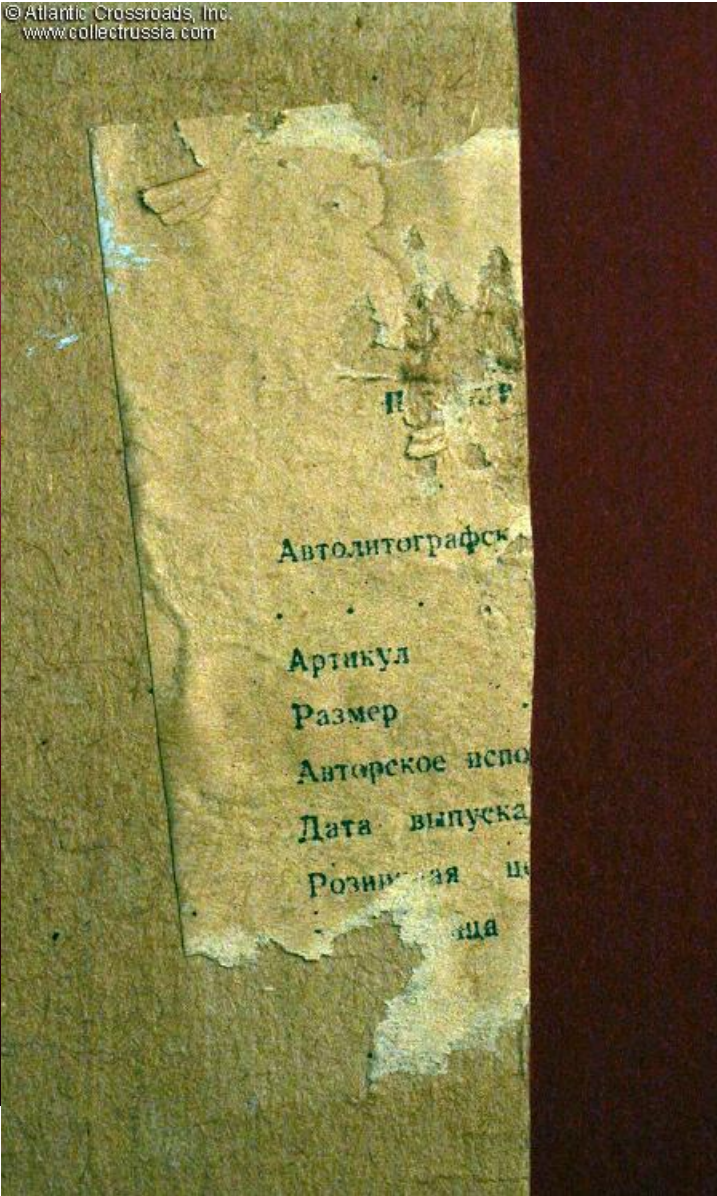 © Atlantic Crossroads, Inc.
www.collectrussia.com
Автолитографск
Артикул
Размер
Авторское испо
Дата выпуска
це